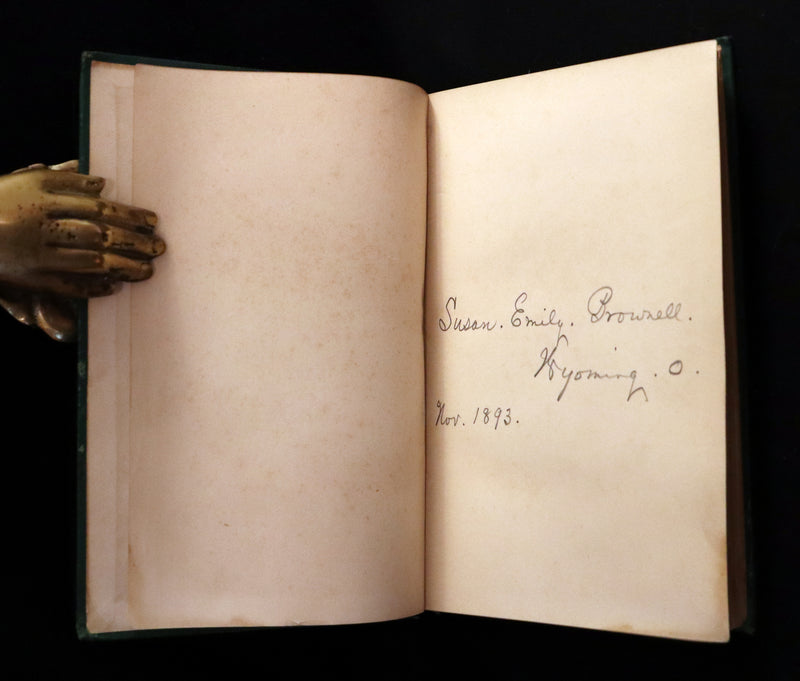 Susan. Emily. Brownell.
Wyoming. O.
Nov. 1893.